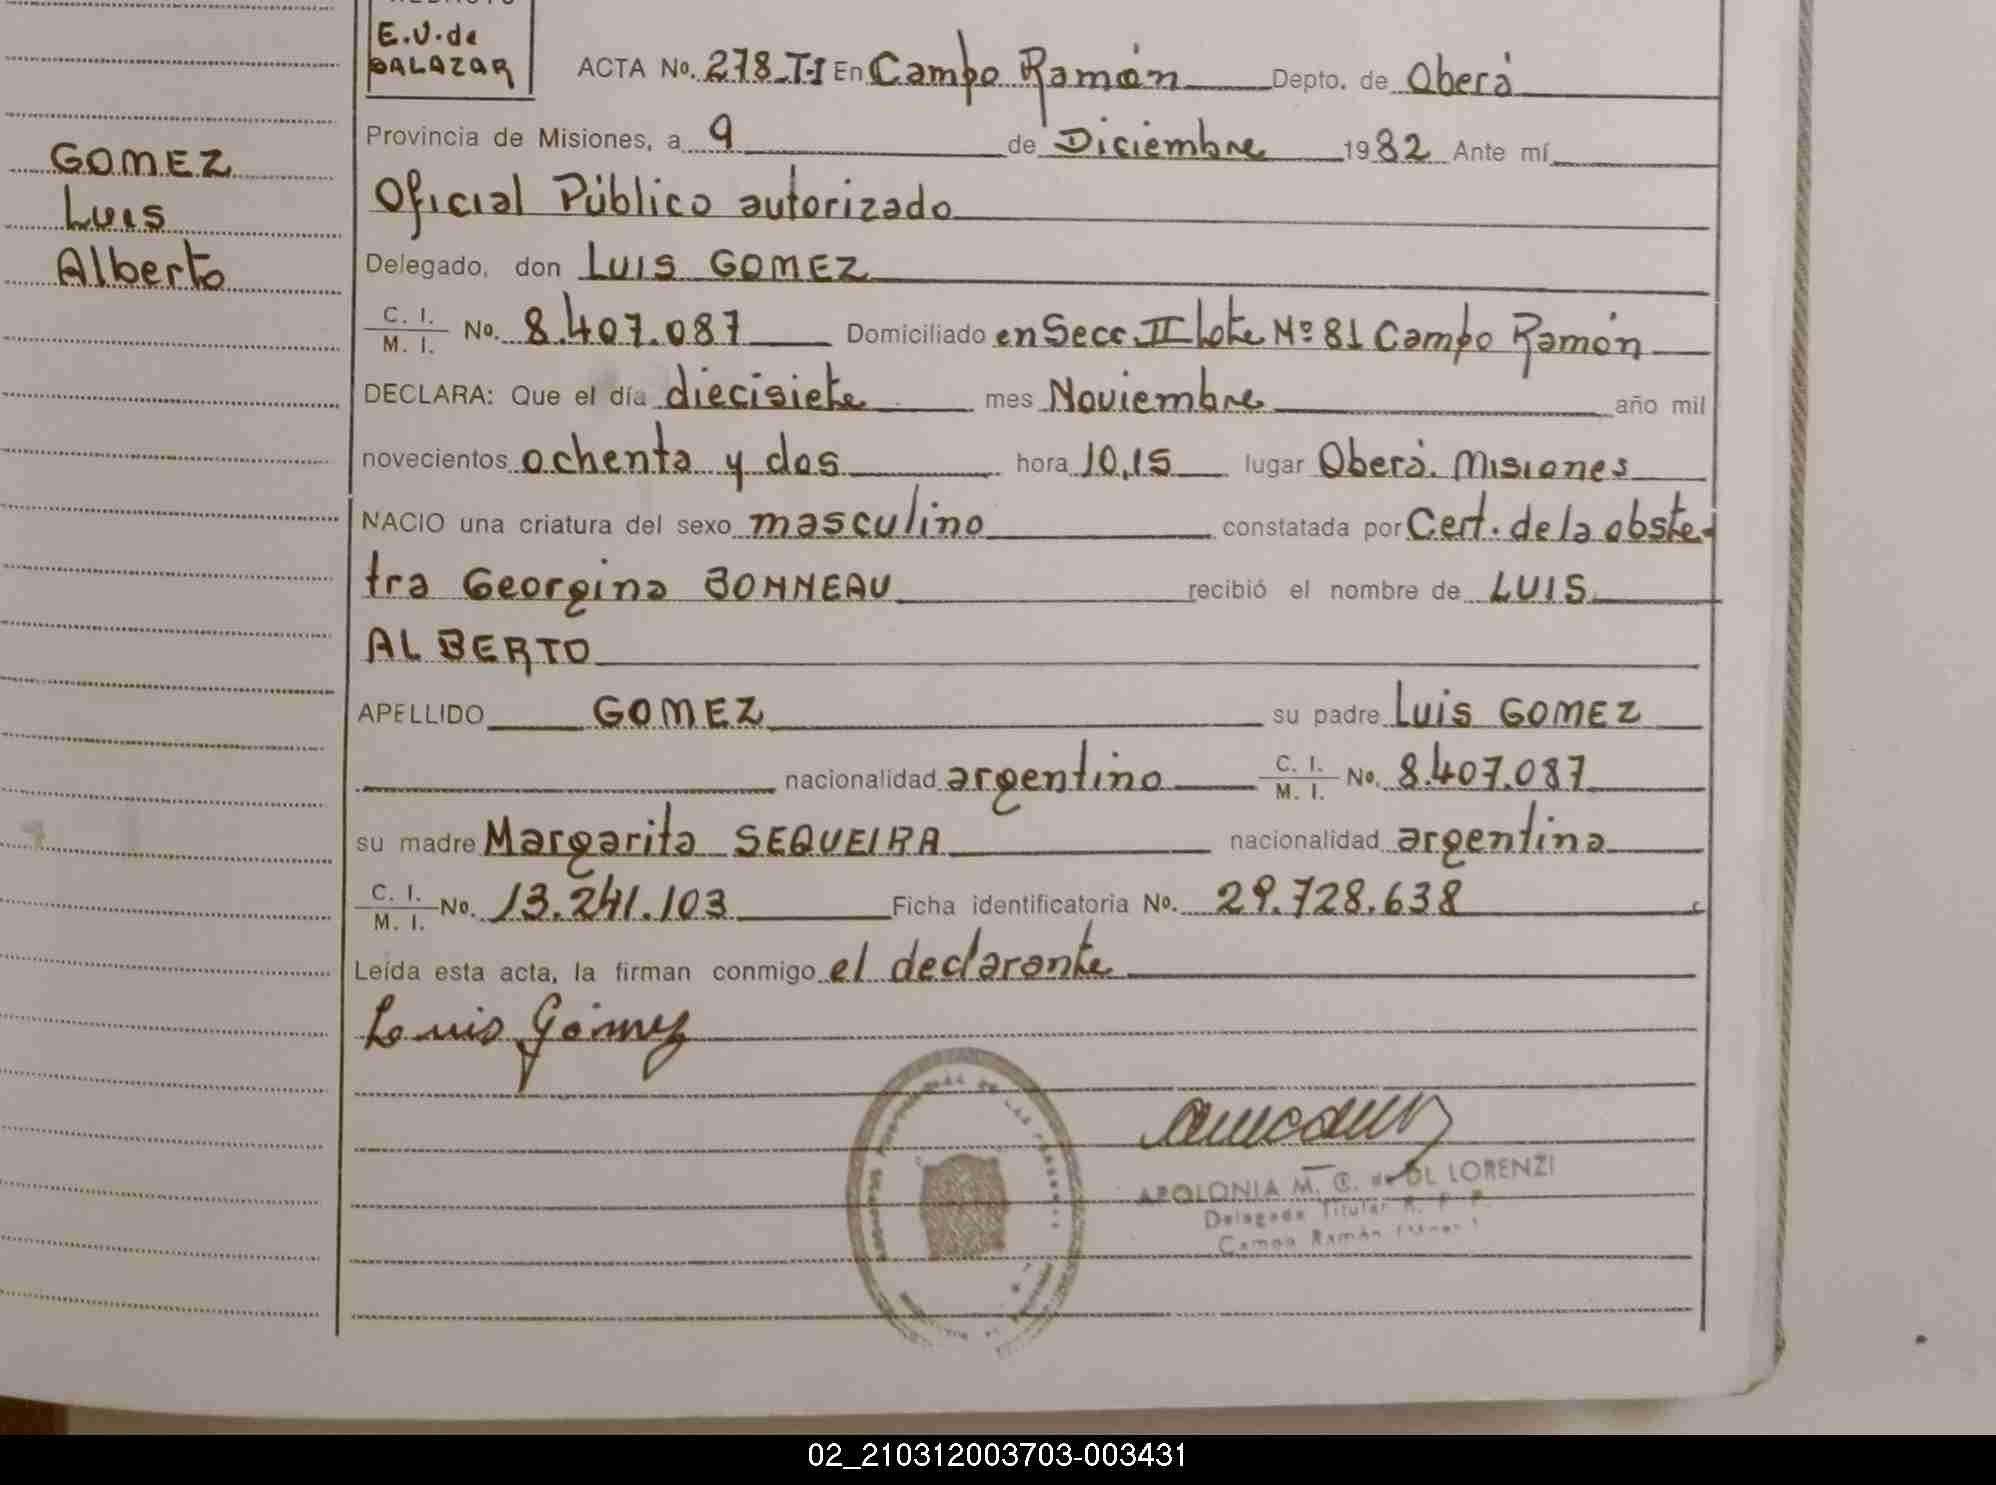 E.V. de
SALAZAR
ACTA No. 278 T-I En Campo Ramón Depto. de Oberá
Provincia de Misiones, a 9 de Diciembre 1982 Ante mí
Oficial Público autorizado
GOMEZ
Luis
Alberto
Delegado, don LUIS GOMEZ
C. I. / M. I. No. 8.407.087 Domiciliado en Secc. II Lote Nº 81 Campo Ramón
DECLARA: Que el día diecisiete mes Noviembre año mil
novecientos ochenta y dos hora 10,15 lugar Oberá. Misiones
NACIO una criatura del sexo masculino constatada por Cert. de la obste-
tra Georgina BONNEAU recibió el nombre de LUIS
ALBERTO
APELLIDO GOMEZ su padre Luis GOMEZ
nacionalidad argentino C. I. / M. I. No. 8.407.087
su madre Margarita SEQUEIRA nacionalidad argentina
C. I. / M. I. No. 13.241.103 Ficha identificatoria No. 29.728.638
Leída esta acta, la firman conmigo el declarante
Luis Gómez
APOLONIA M. C. de DL LORENZI
Delegada Titular R. P. P.
Campo Ramón
02_210312003703-003431